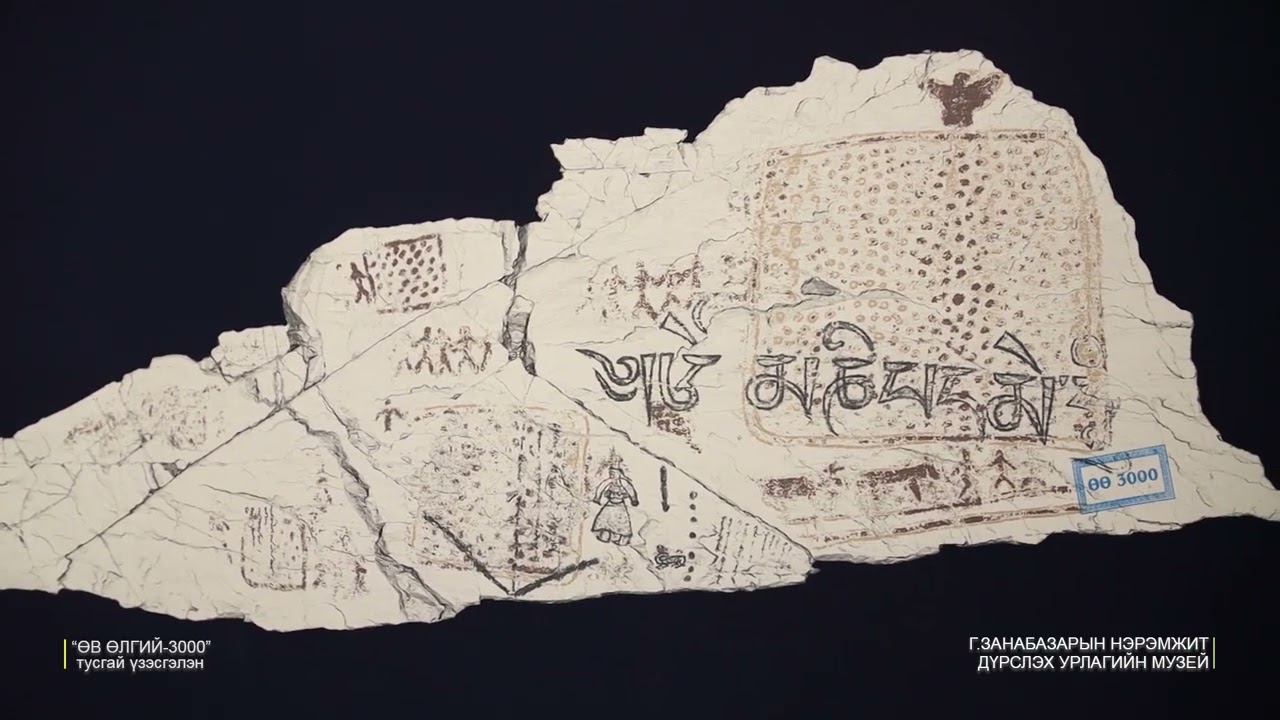 ཨོཾ མཎིཔདམེ
ӨӨ 3000
“ӨВ ӨЛГИЙ-3000”
тусгай үзэсгэлэн
Г.ЗАНАБАЗАРЫН НЭРЭМЖИТ
ДҮРСЛЭХ УРЛАГИЙН МУЗЕЙ